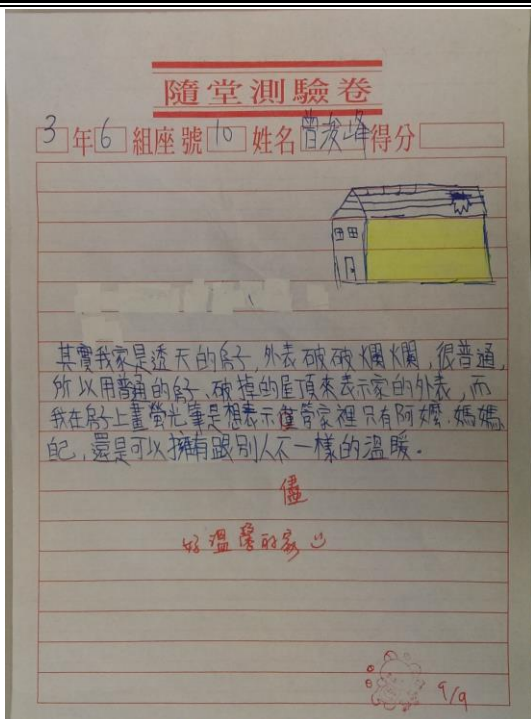 隨堂測驗卷
3年6組座號10姓名曾浚峰得分
其實我家是透天的房子,外表破破爛爛,很普通,
所以用普通的房子、破掉的屋頂來表示家的外表,而
我在房子上畫螢光筆是想表示僅管家裡只有阿嬤、媽媽、
自己,還是可以擁有跟別人不一樣的溫暖。
儘
好溫馨的家
9/9